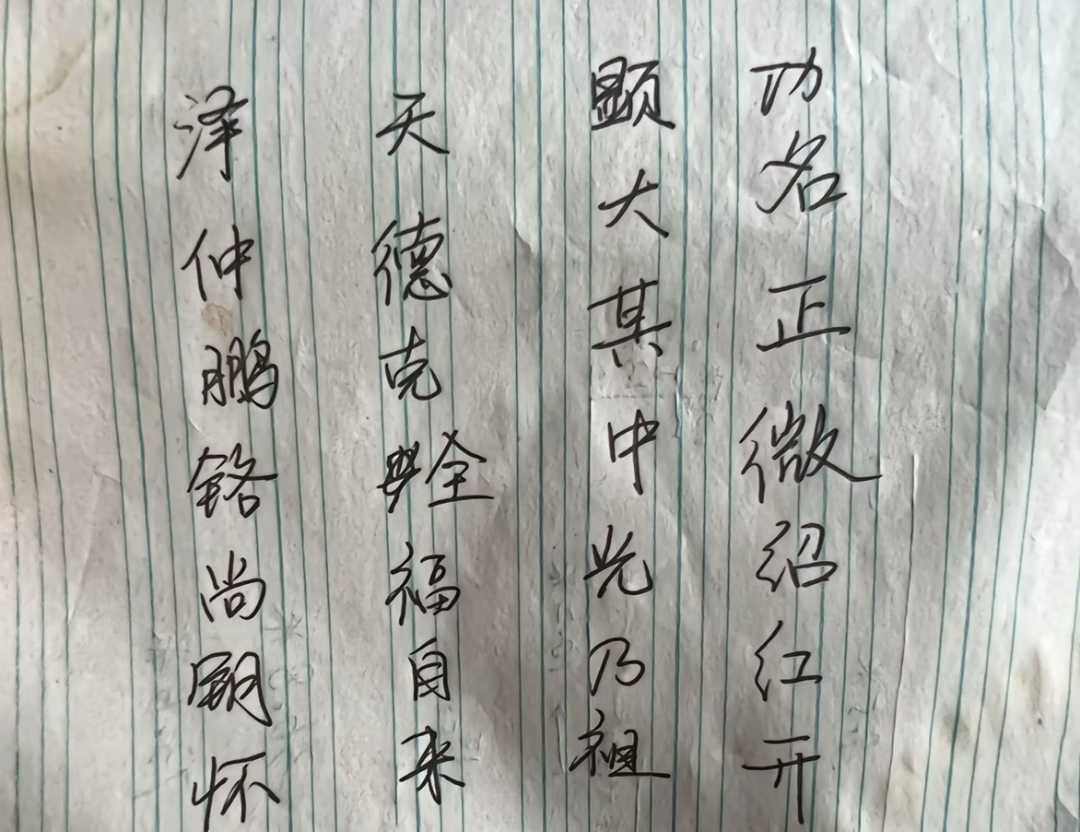 功名正微绍红开
显大其中光乃祖
天德克全福自来
泽仲鹏铭尚嗣怀